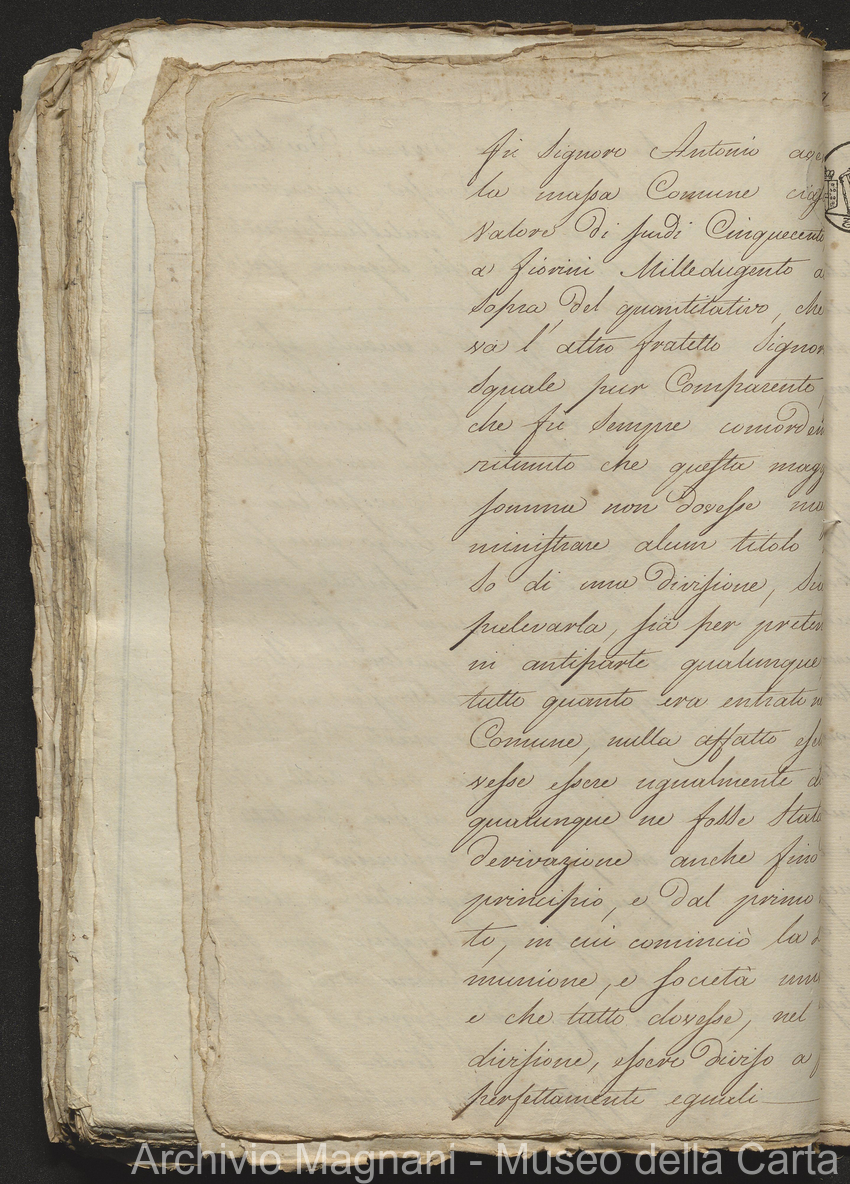 fù Signore Antonio ave
la massa Comune ciò
Valore di scudi Cinquecento
a fiorini Milledugento a
sopra del quantitativo, che
va l'altro fratello Signor
squale pur Comparente,
che fù sempre concorden
ritenuto che questa magg
somma non dovesse
ministrare alcun titolo
so di una divisione, su
prelevarla, sia per preten
in antiparte qualunque
tutto quanto era entrato n
Comune, nulla affatto
vesse essere ugualmente d
qualunque ne fosse stato
derivazione anche fino
principio, e dal primo
to, in cui cominciò la
munione, e società
e che tutto dovesse, nel
divisione, essere diviso a
perfettamente eguali
Archivio Magnani - Museo della Carta